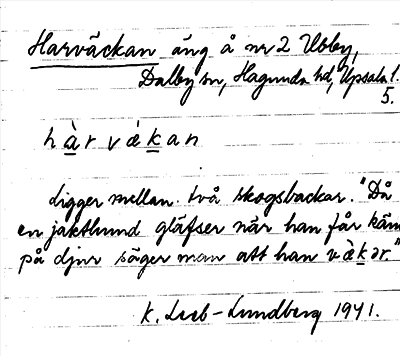 Harväckan äng å nr 2 Ubby,
Dalby sn, Hagunda hd, Upsala l.
5.
hàrvèkan
ligger mellan två skogsbackar. "Då
en jakthund gläfser när han får känn
på djur säger man att han vèkər."
K. Lieb-Lundberg 1941.